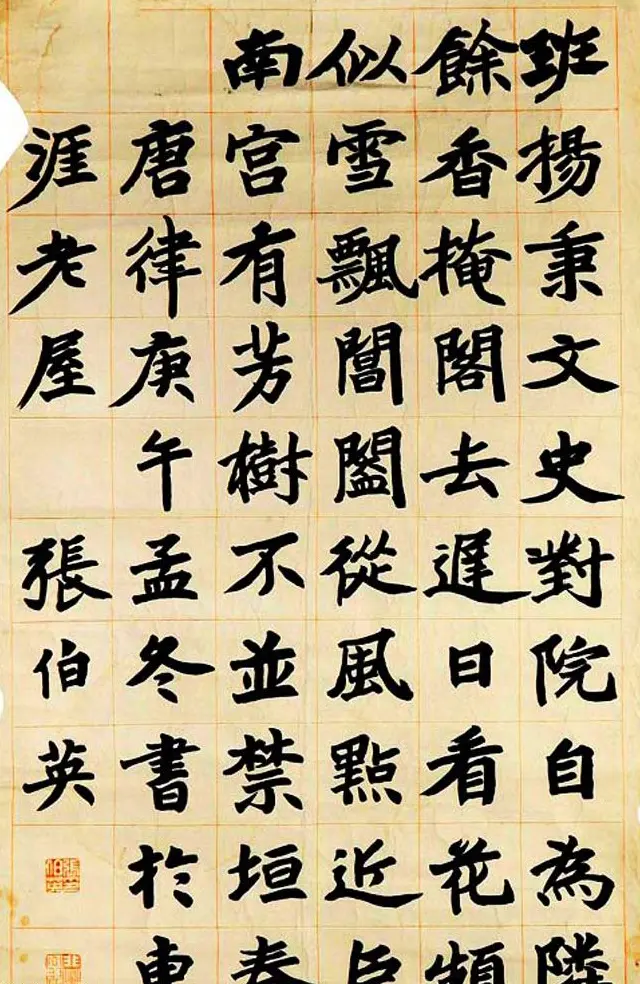 班揚秉文史對院自為隣
餘香掩閣去遲日看花頻
似雪飄閶闔從風點近臣
南宮有芳樹不並禁垣春
唐律庚午孟冬書於東
涯老屋 張伯英